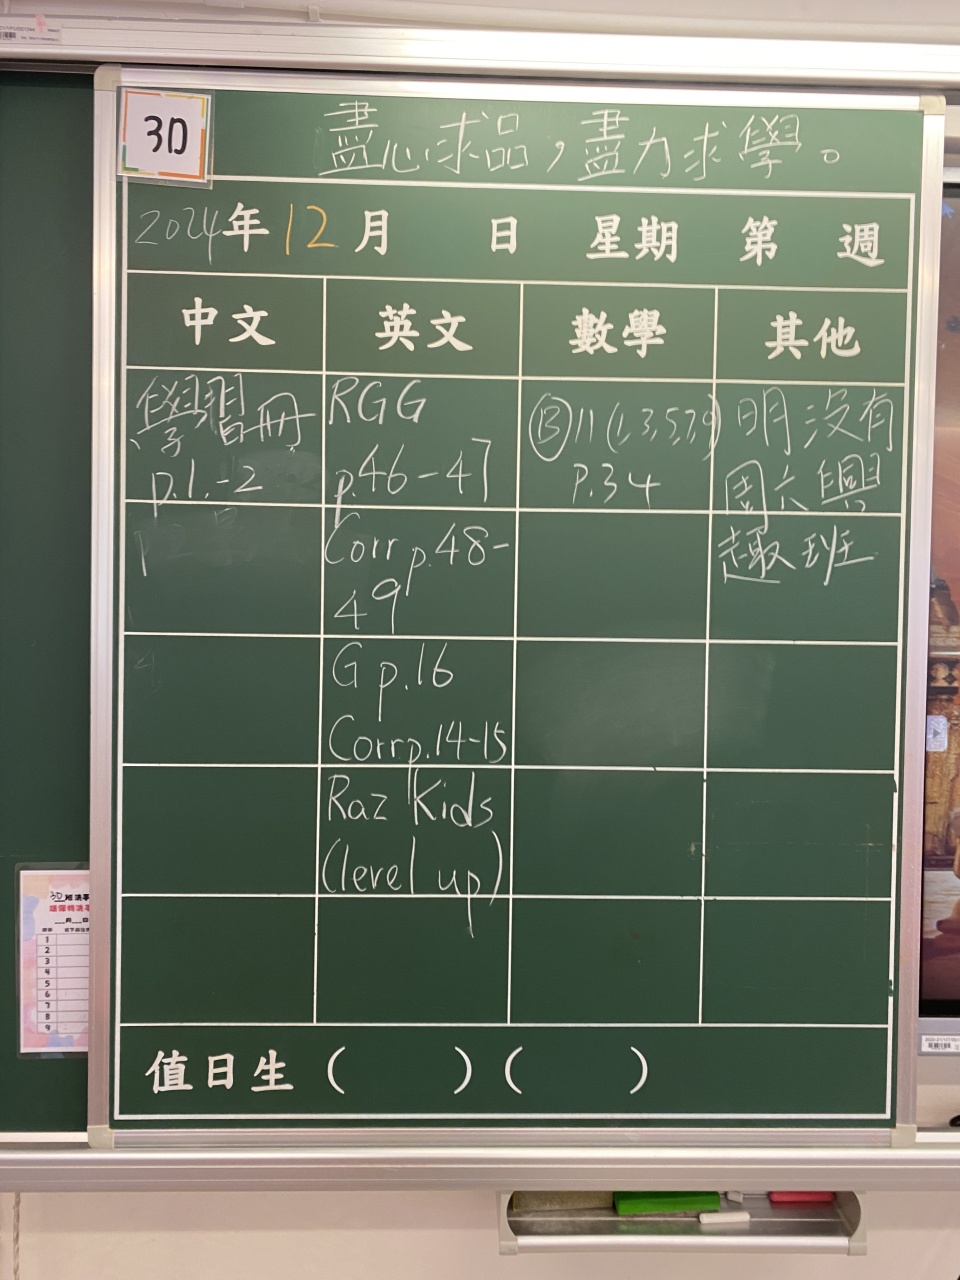 3D
盡心求品，盡力求學。
2024年12月 日 星期 第 週
中文 英文 數學 其他
學習冊
p.1.-2
RGG
p.46-47
Corr p.48-
49
G p.16
Corr p.14-15
Raz Kids
(level up)
Ⓑ11(1,3,5,7,9)
P.34
明沒有
周六興
趣班
值日生（ ）（ ）
3D班清潔
1
2
3
4
5
6
7
8
9